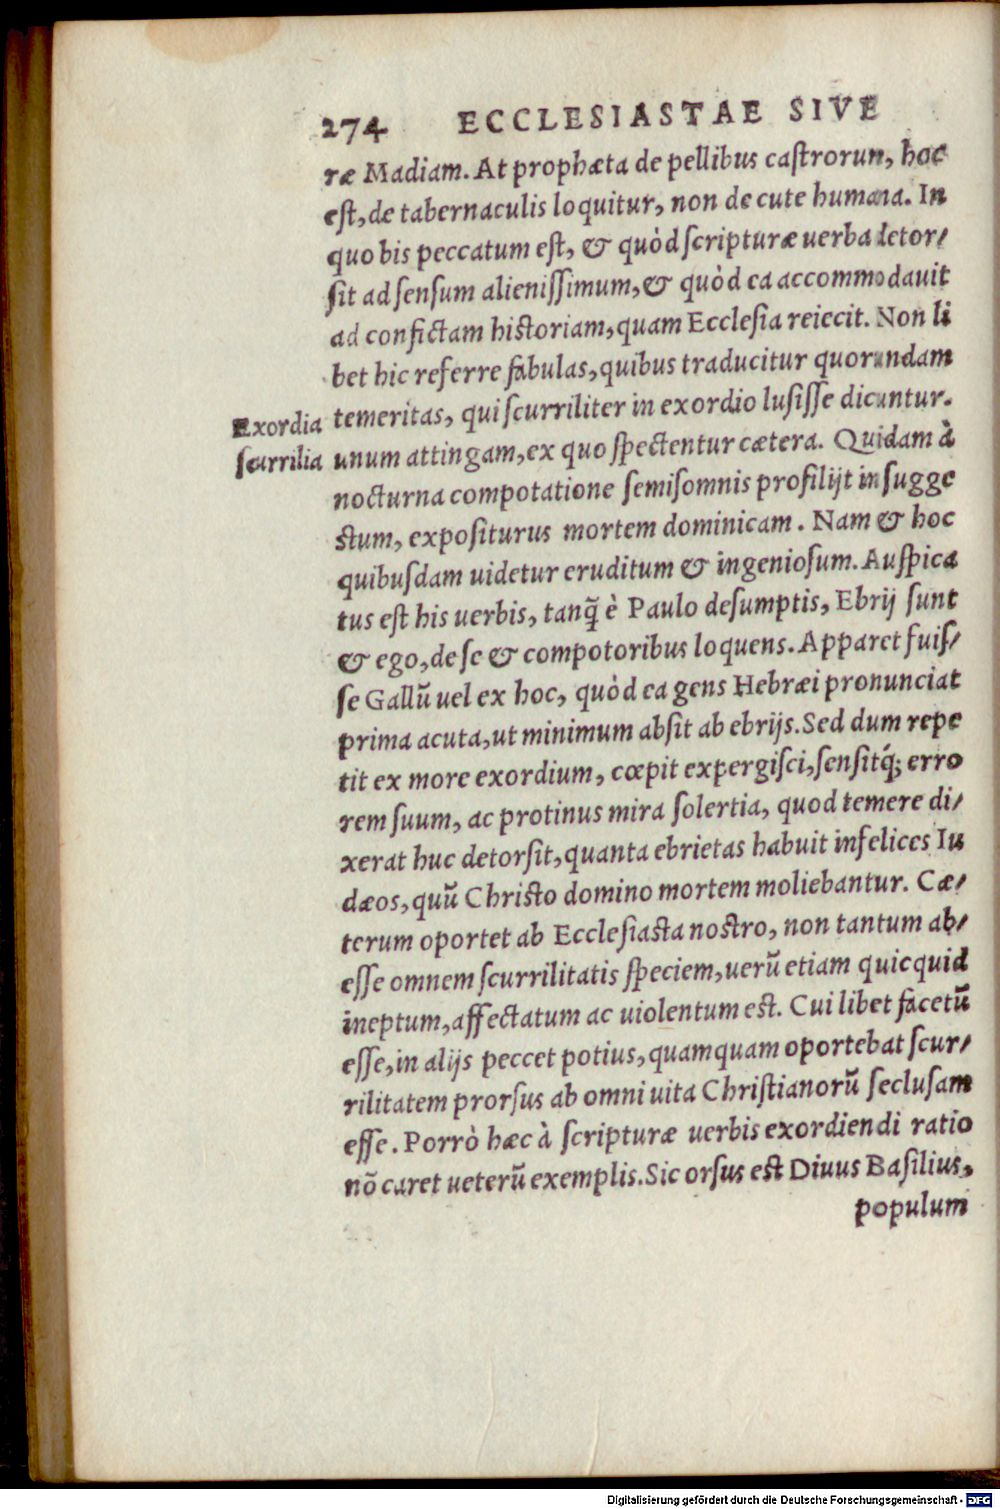 274 ECCLESIASTAE SIVE
ræ Madiam. At prophæta de pellibus castrorum, hoc
est, de tabernaculis loquitur, non de cute humana. In
quo bis peccatum est, & quòd scripturæ uerba detor/
sit ad sensum alienissimum, & quòd ea accommodauit
ad confictam historiam, quam Ecclesia reiecit. Non li
bet hic referre fabulas, quibus traducitur quorundam
Exordia
scurrilia
temeritas, qui scurriliter in exordio lusisse dicuntur.
unum attingam, ex quo spectentur cætera. Quidam à
nocturna compotatione semisomnis profilijt in sugge
stum, expositurus mortem dominicam. Nam & hoc
quibusdam uidetur eruditum & ingeniosum. Auspica
tus est his uerbis, tanq̃ è Paulo desumptis, Ebrij sunt
& ego, de se & compotoribus loquens. Apparet fuis/
se Gallũ uel ex hoc, quòd ea gens Hebræi pronunciat
prima acuta, ut minimum absit ab ebrijs. Sed dum repe
tit ex more exordium, cœpit expergisci, sensitq́; erro
rem suum, ac protinus mira solertia, quod temere di/
xerat huc detorsit, quanta ebrietas habuit infelices Iu
dæos, quũ Christo domino mortem moliebantur. Cæ/
terum oportet ab Ecclesiasta nostro, non tantum ab/
esse omnem scurrilitatis speciem, uerũ etiam quicquid
ineptum, affectatum ac uiolentum est. Cui libet facetũ
esse, in alijs peccet potius, quamquam oportebat scur/
rilitatem prorsus ab omni uita Christianorũ seclusam
esse. Porrò hæc à scripturæ uerbis exordiendi ratio
nõ caret ueterũ exemplis. Sic orsus est Diuus Basilius,
populum
Digitalisierung gefördert durch die Deutsche Forschungsgemeinschaft - DFG